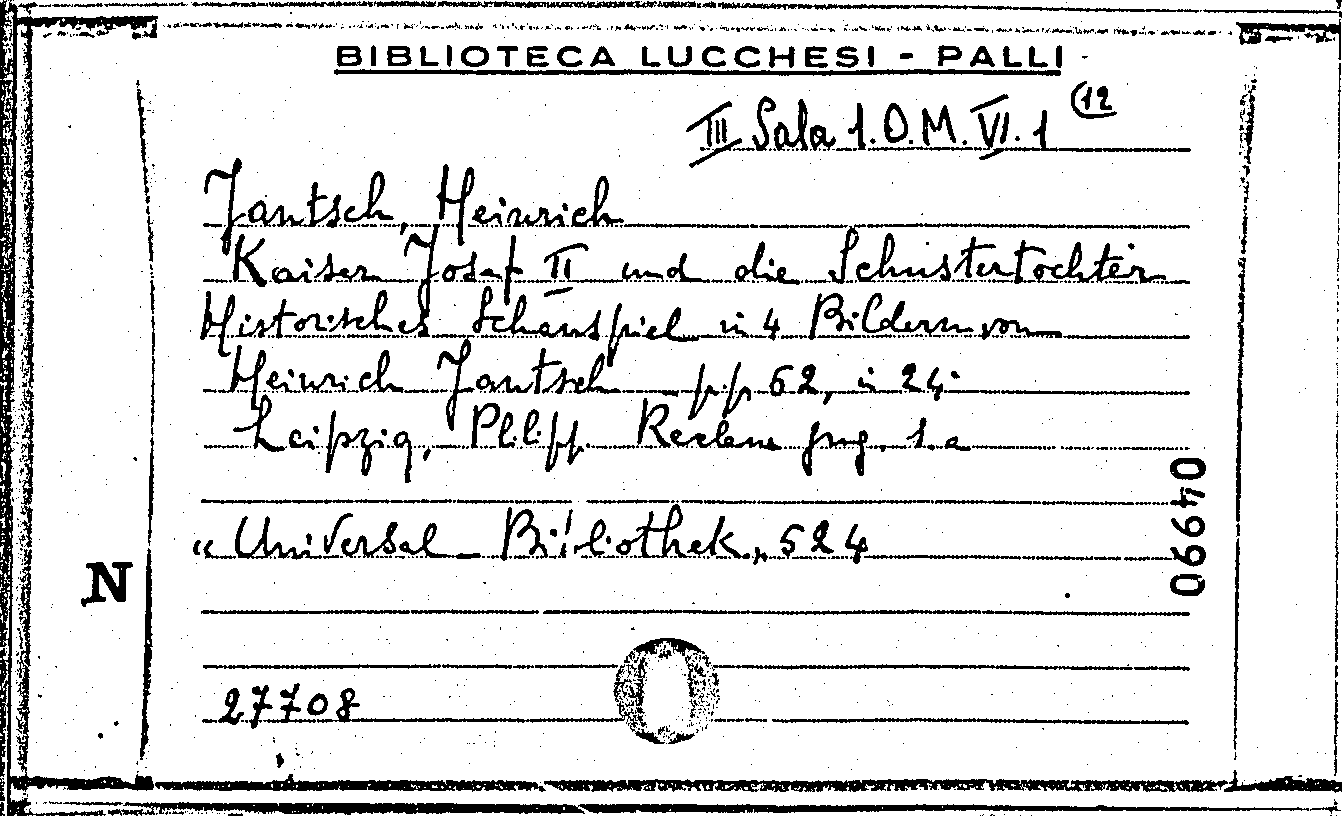 BIBLIOTECA LUCCHESI - PALLI
III Sala 1.O.M.VI.1 (12
Jantsch, Heinrich
Kaiser Josef II und die Schustertochter
Historisches Schauspiel in 4 Bildern von
Heinrich Jantsch pp 62, in 24°
Leipzig, Philipp Reclam jung. s.a
"Universal-Bibliothek„ 524
N
04990
27708